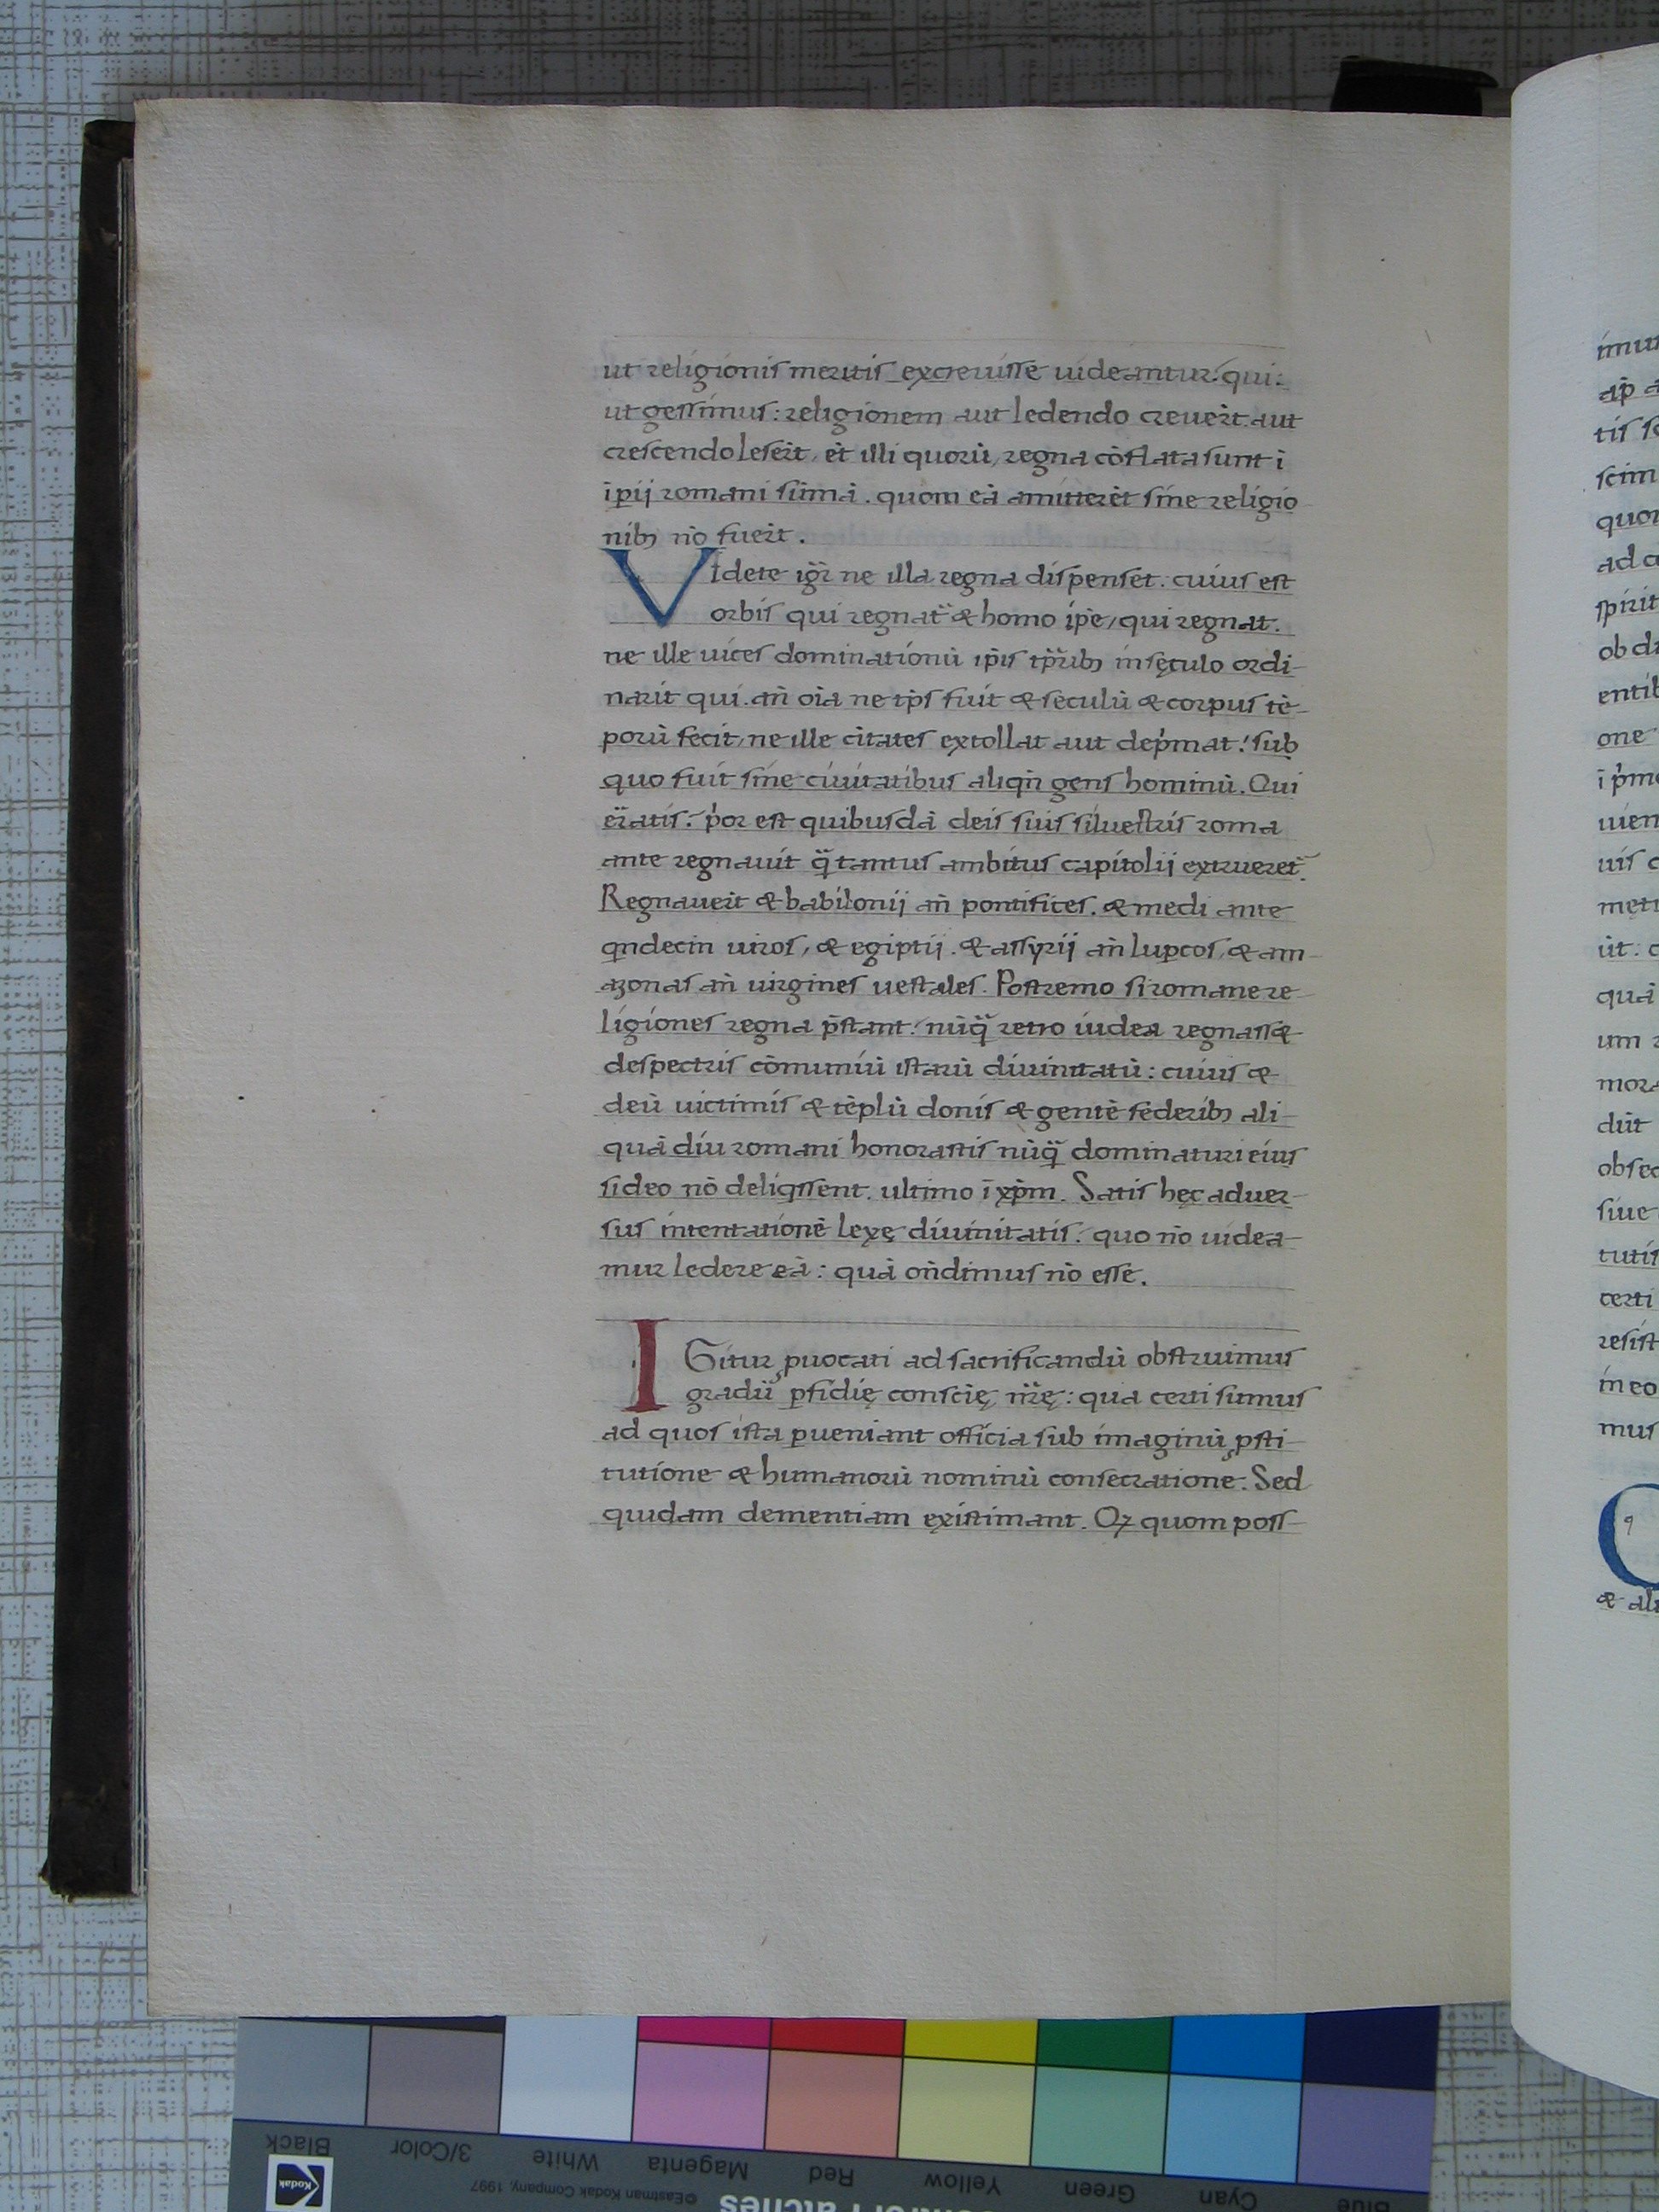 ut religionis meritis excreuisse uideantur. qui.
ut gessimus: religionem aut ledendo creuerīt. aut
crescendo leserīt, et illi quorū, regna cōflata sunt ī
īpij romani sūmā. quom eā amitterēt sine religio
nibꝫ nō fuerīt.
Videte igr̄ ne illa regna dispenset. cuius est
orbis qui regnat̄ & homo ip̄e, qui regnat.
ne ille uices dominationū ip̄is tp̄ribꝫ in sęculo ordi-
narit qui. an̄ oīa ne tp̄s fuit & seculū & corpus tē-
porū fecit, ne ille citates extollat aut dep̄mat! sub
quo fuit sine ciuitatibus aliqn̄ gens hominū. Qui
er̄atis. p̄or est quibusdā deis suis siluestris roma
ante regnauit q̄ tantus ambitus capitolij extrueret̄.
Regnauerīt & babilonij an̄ pontifices. & medi ante
qndecin uiros, & egiptij. & assyrij an̄ luꝑcos, & am-
azonas an̄ uirgines uestales. Postremo si romane re-
ligiones regna p̄stant. nūq̄ retro iudea regnass&
despectris cōmuniū istarū diuinitatū: cuius &
deū uictimis & tēplū donis & gentē federibꝫ ali-
quā diu romani honorastis nūq̄ dominaturi eius
si deo nō deliqissent. ultimo ī xp̄m. Satis hęc aduer-
sus intentationē lexę diuinitatis. quo nō uidea-
mur ledere eā: quā on̄dimus nō esse.
IGitur ꝓuocati ad sacrificandū obstruimus
gradū ꝑfidię conscię nr̄ę: qua certi sumus
ad quos ista ꝑueniant officia sub imaginū ꝓsti-
tutione & humanorū nominū consecratione. Sed
quidam dementiam existimant. Qꝫ quom poss-
imu
ap̄ a
tis
scim
quor
ad
spirit
ob di
entib
one
ī p̄mo
uien
uis
metu
quā
um
mora
dūt
obsec
siue
tutis
certi
resist
in eo
mus
Q
& ali
Black
3/Color
White
Magenta
Red
Yellow
Green
Cyan
Blue
Kodak
©Eastman Kodak Company, 1997
Patches